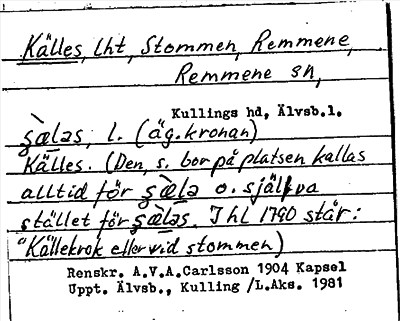 Källes, lht, Stommen, Remmene,
Remmene sn,
Kullings hd, Älvsb.l.
ʂæ̀ləs, l. (äg. kronan)
Källes. (Den, s. bor på platsen kallas
alltid för ʂæ̀lə o. själfva
stället för ʂæ̀ləs. I hl 1790 står:
"Källekrok eller vid stommen)
Renskr. A.V.A.Carlsson 1904 Kapsel
Uppt. Älvsb., Kulling /L.Aks. 1981